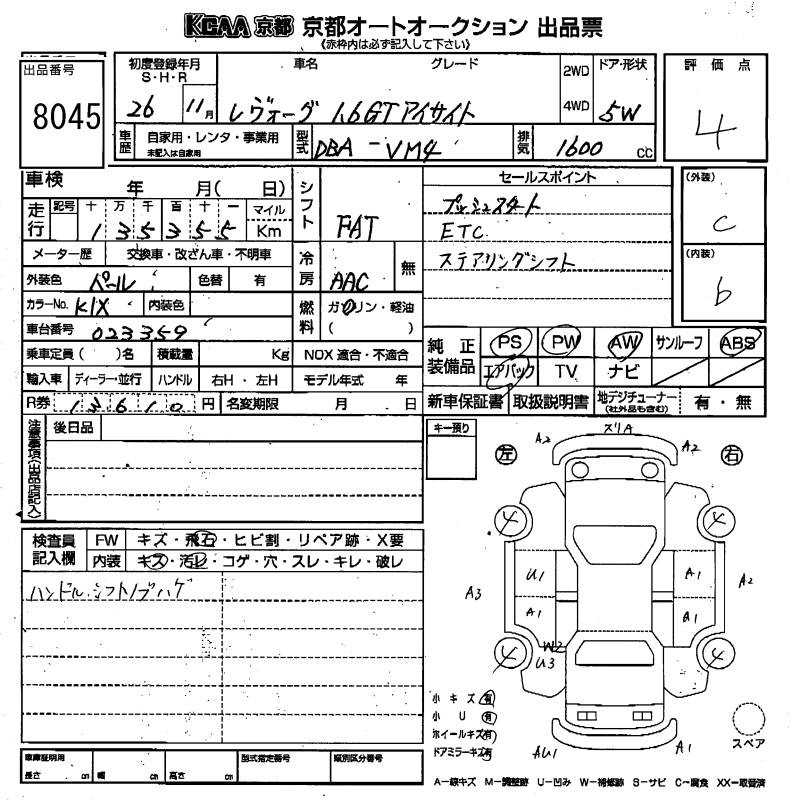 KCAA 京都 京都オートオークション 出品票
《赤枠内は必ず記入して下さい》
出品番号
8045
初度登録年月
S・H・R
26 11月
車名 グレード
レヴォーグ 1.6GTアイサイト
2WD
4WD
ドア・形状
5W
評価点
4
車歴
自家用・レンタ・事業用
未記入は自家用
型式
DBA - VM4
排気
1600 cc
車検 年 月( 日)
走行
記号 十 万 千 百 十 一 マイル
1 3 5 3 5 5 Km
メーター歴 交換車・改ざん車・不明車
外装色 パール 色替 有
カラーNo. K1X 内装色
車台番号 023359
乗車定員( )名 積載量 Kg
輸入車 ディーラー・並行 ハンドル 右H・左H
R券 13610円 名変期限 月 日
シフト
FAT
冷房
AAC 無
燃料
ガソリン・軽油
( )
NOX 適合・不適合
モデル年式 年
セールスポイント
プッシュスタート
ETC
ステアリングシフト
(外装)
C
(内装)
b
純正装備品
PS PW AW サンルーフ ABS
エアバック TV ナビ
新車保証書 取扱説明書 地デジチューナー(社外品も含む) 有・無
注意事項(出品店記入)
後日品
キー預り
検査員記入欄
FW キズ・飛石・ヒビ割・リペア跡・X要
内装 キズ・汚レ・コゲ・穴・スレ・キレ・破レ
ハンドル シフトノブハゲ
左 A2 スリA A2 右
4 4
U1 A1
A3 A2
A1 A1
4 W2 4
U3
小キズ有
小U有
ホイールキズ有
ドアミラーキズ有
AU1 A1
スペア
車庫証明用
長さ cm 幅 cm 高さ cm
型式指定番号
類別区分番号
A-線キズ M-調整跡 U-凹み W-補修跡 S-サビ C-腐食 XX-取替済